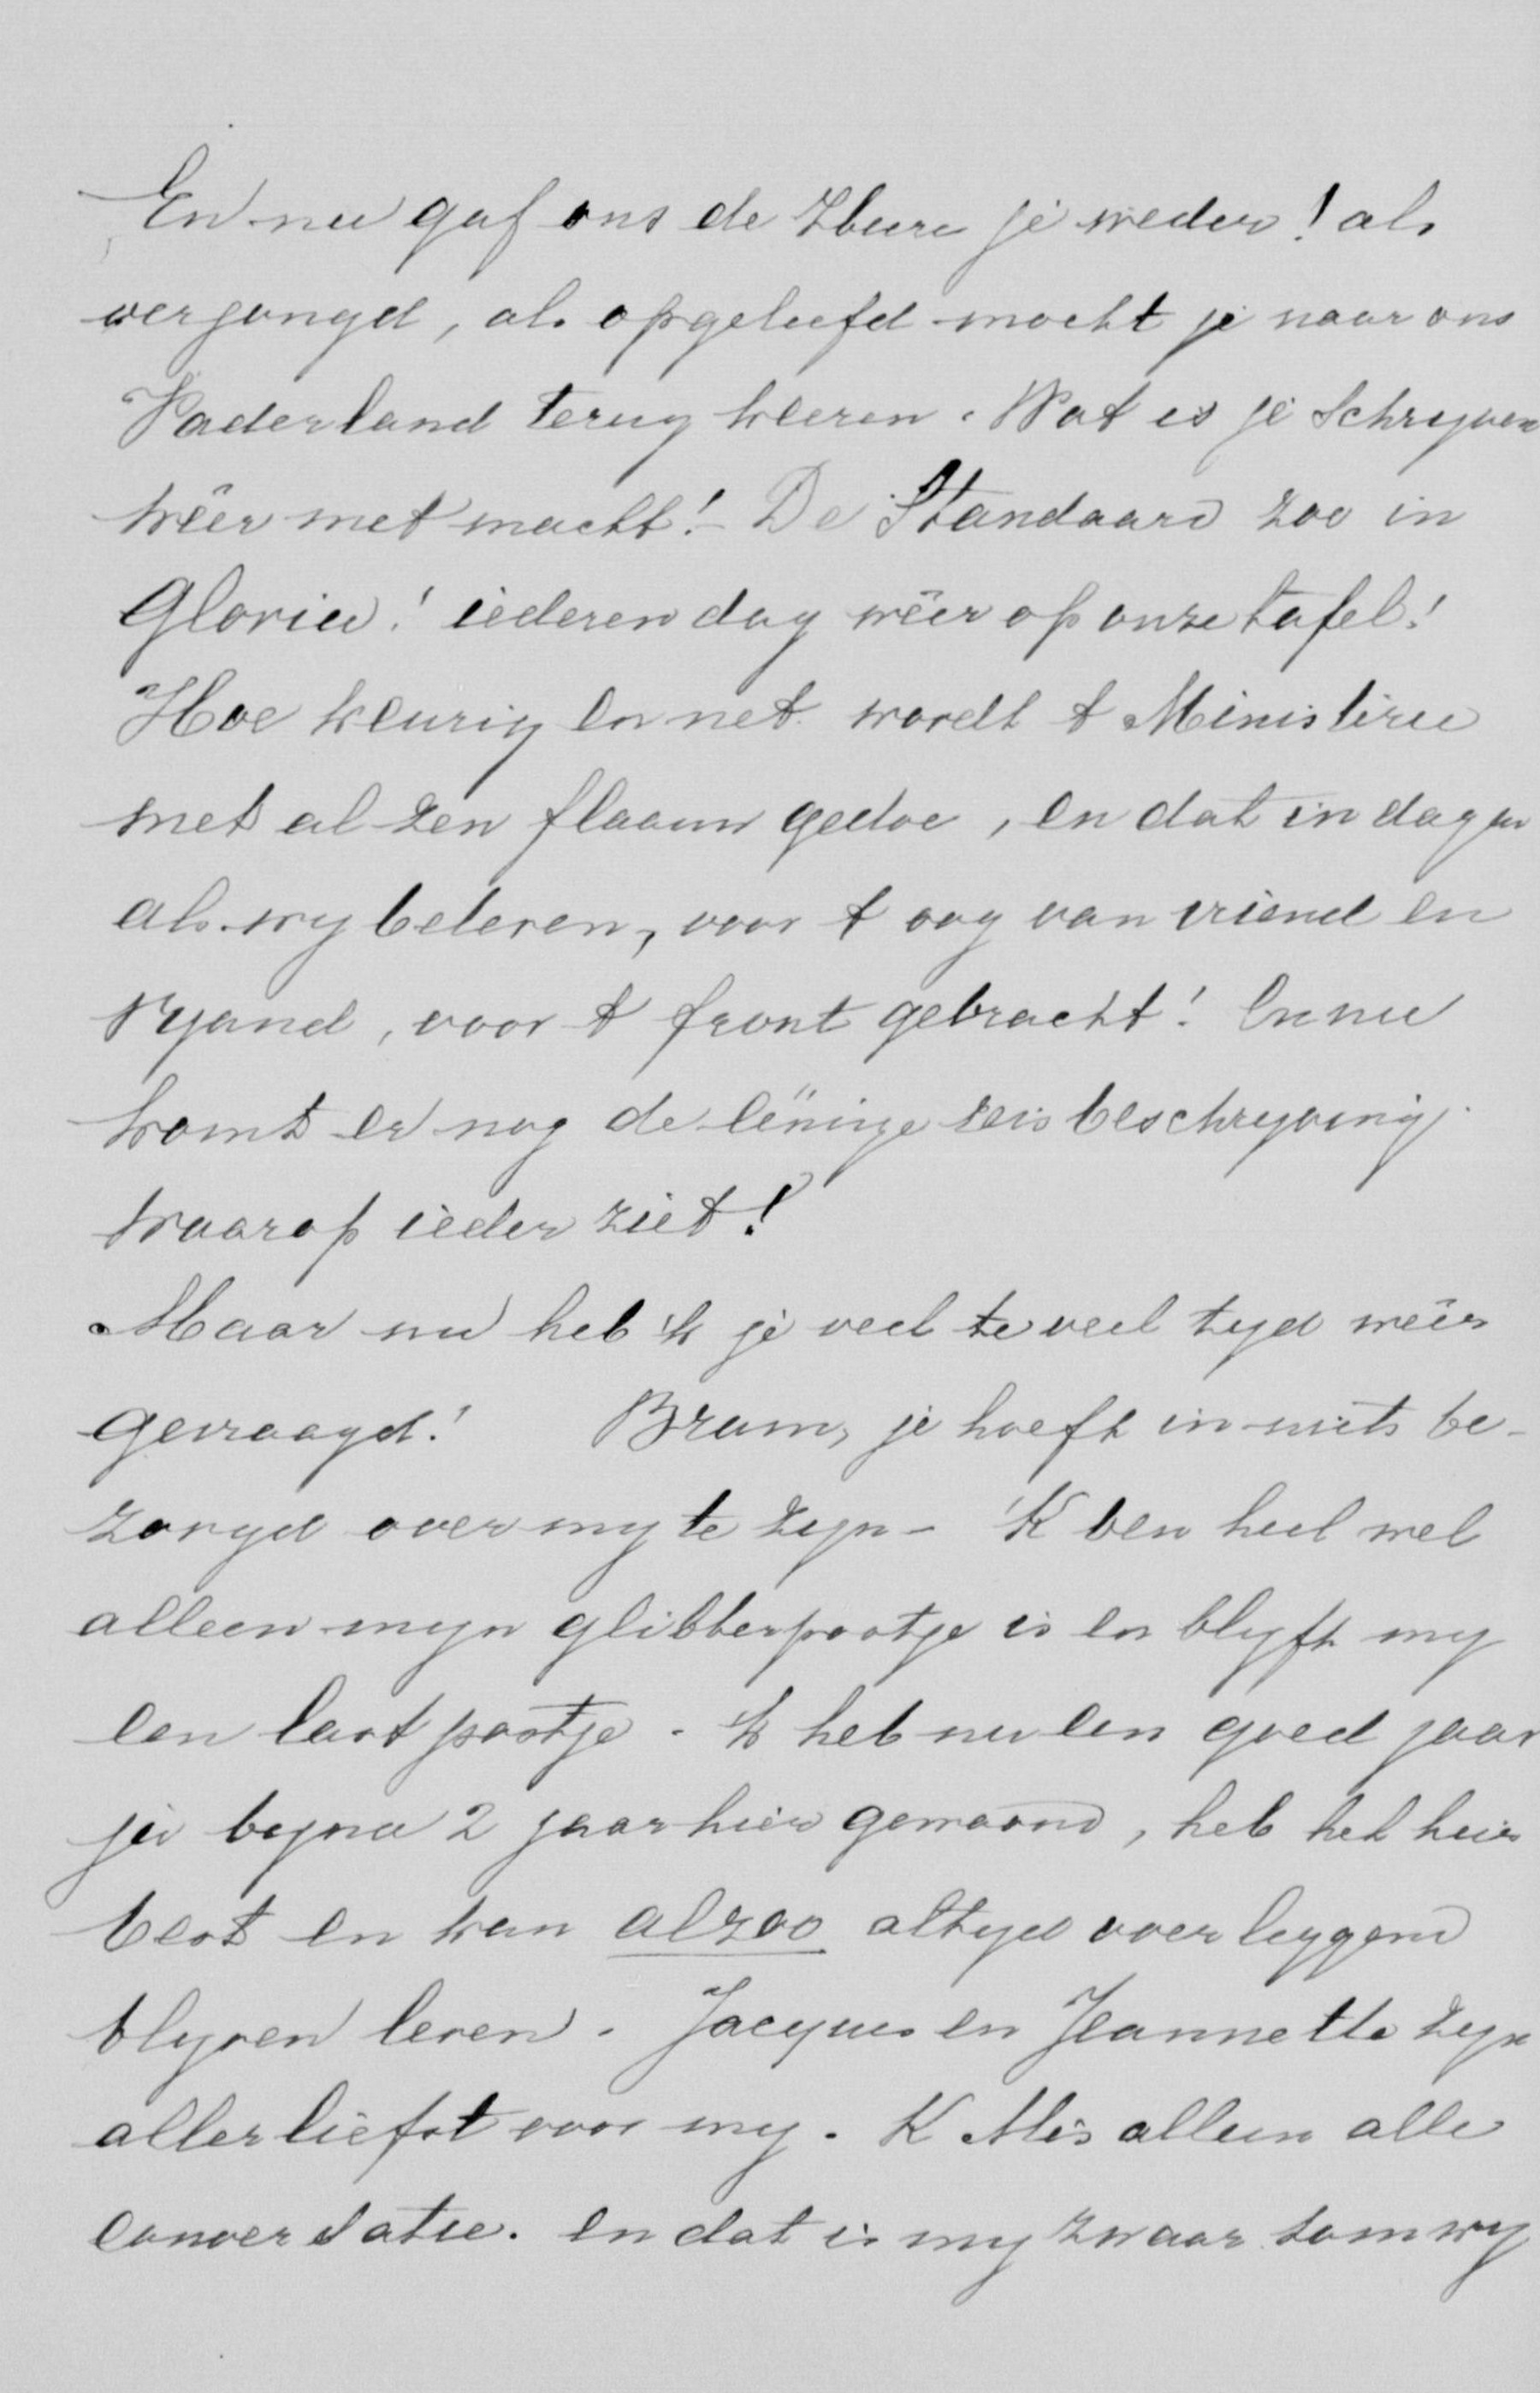 En nu gaf ons de Heere je weder! als
verjongd, als opgeleefd mocht je naar ons
Vaderland terug keeren. Wat is je schryven
wêer met macht! - De Standaard zoo in
Gloria! iederen dag wêer op onze tafel!
Hoe keurig en net wordt t Ministerie
met al zen flaauw gedoe, en dat in dagen
als wy beleven, voor t oog van vriend en
vyand, voor t front gebracht! En nu
komt er nog de eënige reisbeschryving
waarop ieder ziet!
Maar nu heb 'k je veel te veel tyd wêer
gevraagd! Bram, je hoeft in niets be-
zorgd over my te zyn - 'K ben heel wel
alleen myn glibberpootje is en blyft my
een lastpostje. 'k heb nu een goed jaar
ja byna 2 jaar hier gewoond, heb het hier
best en kan alzoo altyd overleggend
blyven leven. Jacques en Jeannette zyn
allerliefst voor my. K Mis alleen alle
conversatie. en dat is my zwaar somwy